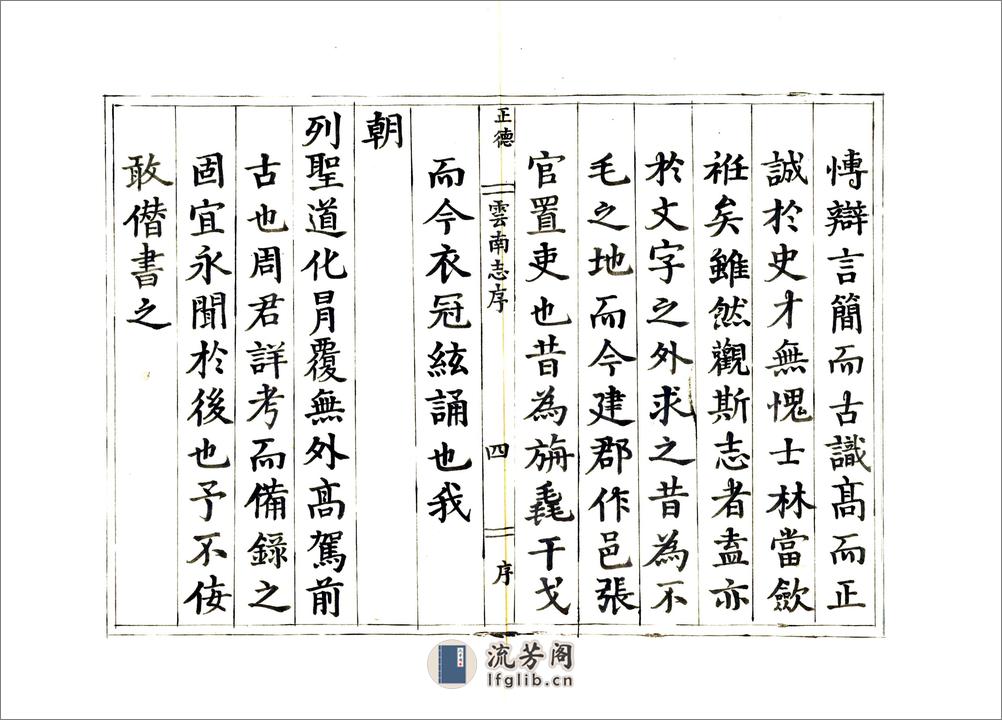 慱辯言簡而古識髙而正
誠於史才無愧士林當歛
袵矣雖然觀斯志者盍亦
於文字之外求之昔為不
毛之地而今建郡作邑張
官置吏也昔為旃毳干戈
正德
雲南志序
四
序
而今衣冠絃誦也我
朝
列聖道化冒覆無外高駕前
古也周君詳考而備錄之
固宜永聞於後也予不侫
敢僭書之
流芳阁
lfglib.cn